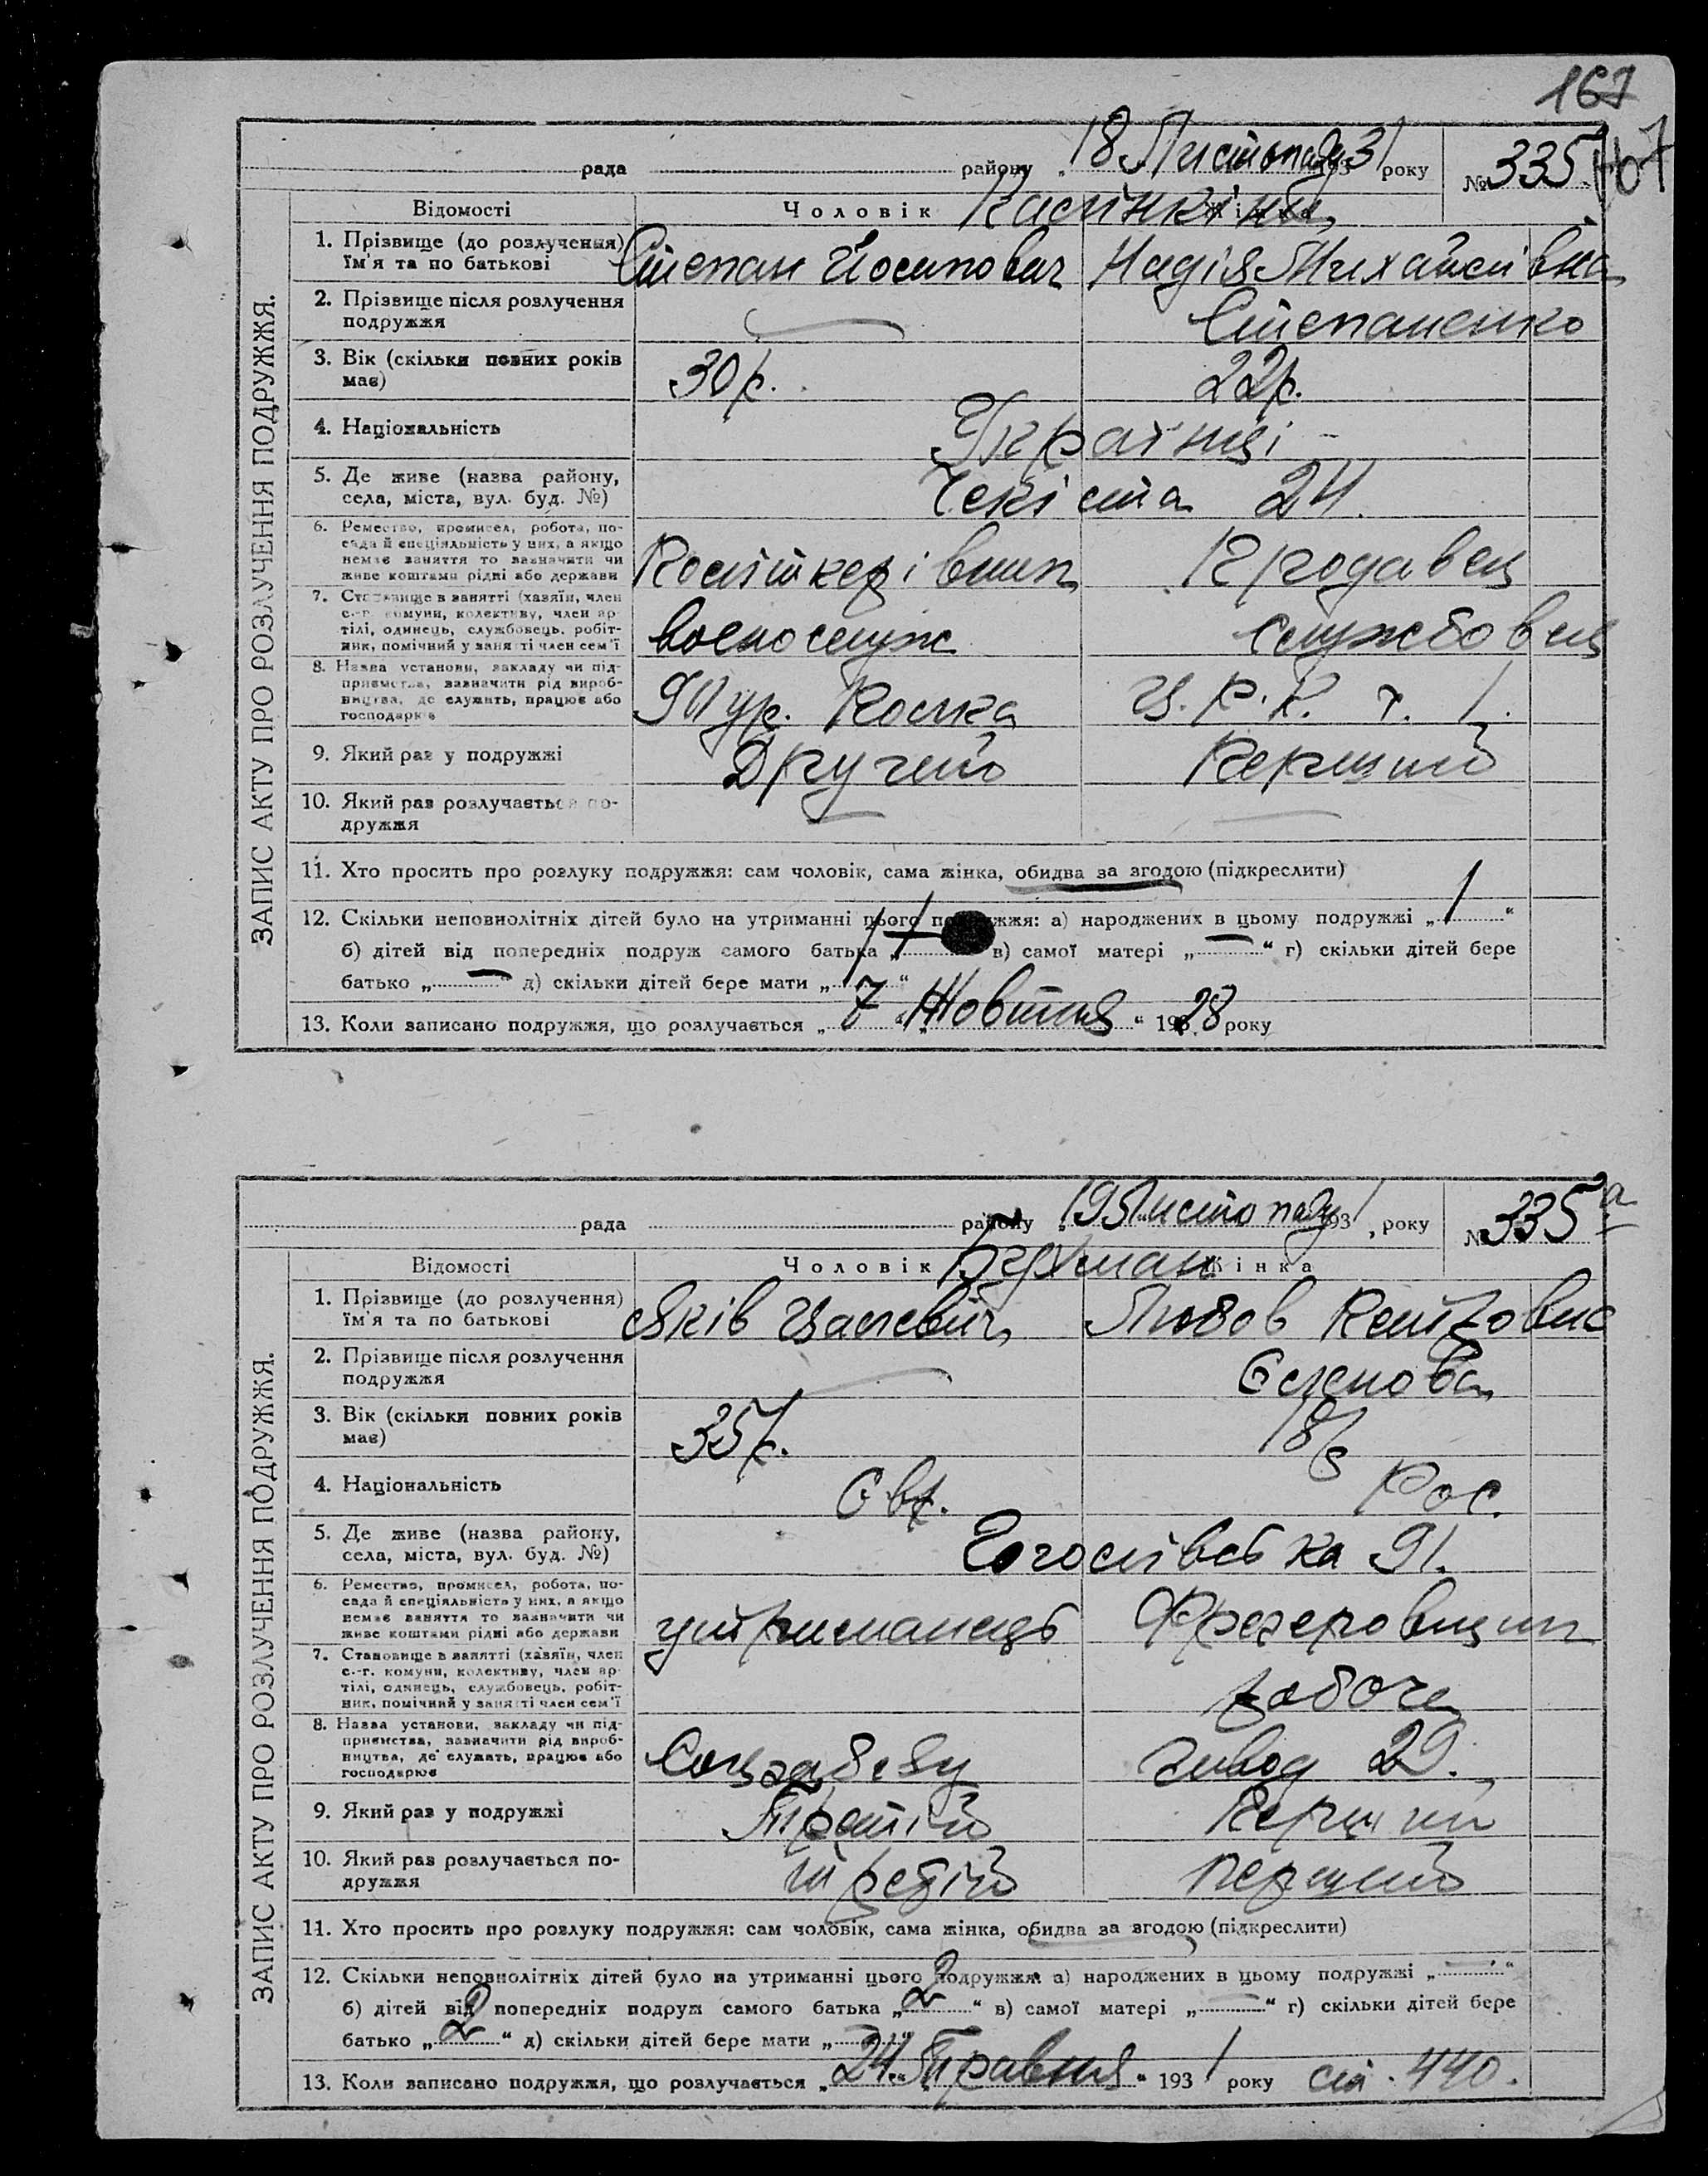 167
рада району „18 Листопаду 1931 року № 335
167
Відомості Чоловік Жінка
1. Прізвище (до розлучення) ім'я та по батькові Степан Йосипович Надія Михайлівна
2. Прізвище після розлучення подружжя — Степаненко
3. Вік (скільки повних років має) 30 р. 22 р.
4. Національність Українці
5. Де живе (назва району, села, міста, вул. буд. №) Чекіста 24.
6. Ремество, промисел, робота, посада й спеціяльність у них, а якщо немає заняття то зазначити чи живе коштами рідні або держави Політкерівник Продавец
7. Становище в занятті (хазяїн, член с.-г. комуни, колективу, член артілі, одинець, службовець, робітник, помічний у занятті член сем'ї военослуж службовец
8. Назва установи, закладу чи підприємства, зазначити рід виробництва, де служить, працює або господарює Ц.Р.К. 1.
9. Який раз у подружжі Другий Перший
10. Який раз розлучається подружжя — —
11. Хто просить про розлуку подружжя: сам чоловік, сама жінка, обидва за згодою (підкреслити)
12. Скільки неповнолітніх дітей було на утриманні цього подружжя: а) народжених в цьому подружжі „ 1 “
б) дітей від попередніх подруж самого батька „ в) самої матері „ — “ г) скільки дітей бере
батько „ — “ д) скільки дітей бере мати „ 1 “
13. Коли записано подружжя, що розлучається „ 7 “ Жовтня “ 1928 року
ЗАПИС АКТУ ПРО РОЗЛУЧЕННЯ ПОДРУЖЖЯ.
рада району „19 Листопаду 1931, року № 335а
Відомості Чоловік Жінка
1. Прізвище (до розлучення) ім'я та по батькові Яків Любов
2. Прізвище після розлучення подружжя —
3. Вік (скільки повних років має) 35 р. 18 р
4. Національність Євр. Рос.
5. Де живе (назва району, села, міста, вул. буд. №) 91.
6. Ремество, промисел, робота, посада й спеціяльність у них, а якщо немає заняття то зазначити чи живе коштами рідні або держави утриманець Фрезеровщик
7. Становище в занятті (хазяїн, член с.-г. комуни, колективу, член артілі, одинець, службовець, робітник, помічний у занятті член сем'ї робоча
8. Назва установи, закладу чи підприємства, зазначити рід виробництва, де служить, працює або господарює Соцзабезу завод 29.
9. Який раз у подружжі Третій Перший
10. Який раз розлучається подружжя третій перший
11. Хто просить про розлуку подружжя: сам чоловік, сама жінка, обидва за згодою (підкреслити)
12. Скільки неповнолітніх дітей було на утриманні цього подружжя: 2 а) народжених в цьому подружжі „ — “
б) дітей від попередніх подруж самого батька „ 2 “ в) самої матері „ — “ г) скільки дітей бере
батько „ 2 “ д) скільки дітей бере мати „ — “
13. Коли записано подружжя, що розлучається „ 24 “ Травня “ 1931 року 440.
ЗАПИС АКТУ ПРО РОЗЛУЧЕННЯ ПОДРУЖЖЯ.